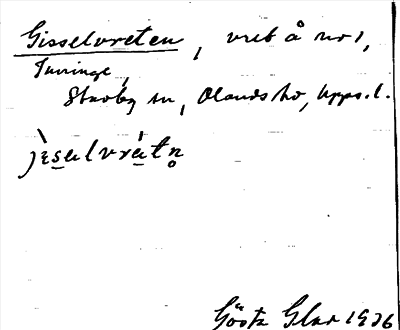 Gisselvreten, vret å nr 1,
Tuvinge,
Stavby sn, Olands hd, Upps. l.
jɛ̀sɛlvrétn̥
Gösta                1936